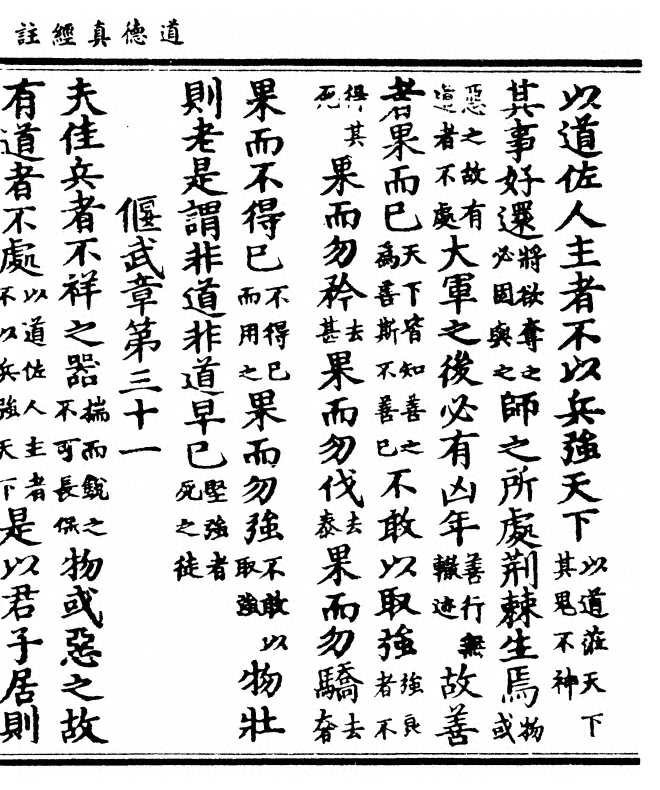 道德真經註
以道佐人主者不以兵強天下以道莅天下其鬼不神
其事好還將欲奪之必固與之師之所處荊棘生焉物或
惡之故有道者不處大軍之後必有凶年善行無轍迹故善
者果而已天下皆知善之爲善斯不善已不敢以取強強良者不
得其死果而勿矜去甚果而勿伐去泰果而勿驕去奢
果而不得已不得已而用之果而勿強不敢以取強物壯
則老是謂非道非道早已堅強者死之徒
偃武章第三十一
夫佳兵者不祥之器揣而銳之不可長保物或惡之故
有道者不處以道佐人主者不以兵強天下是以君子居則